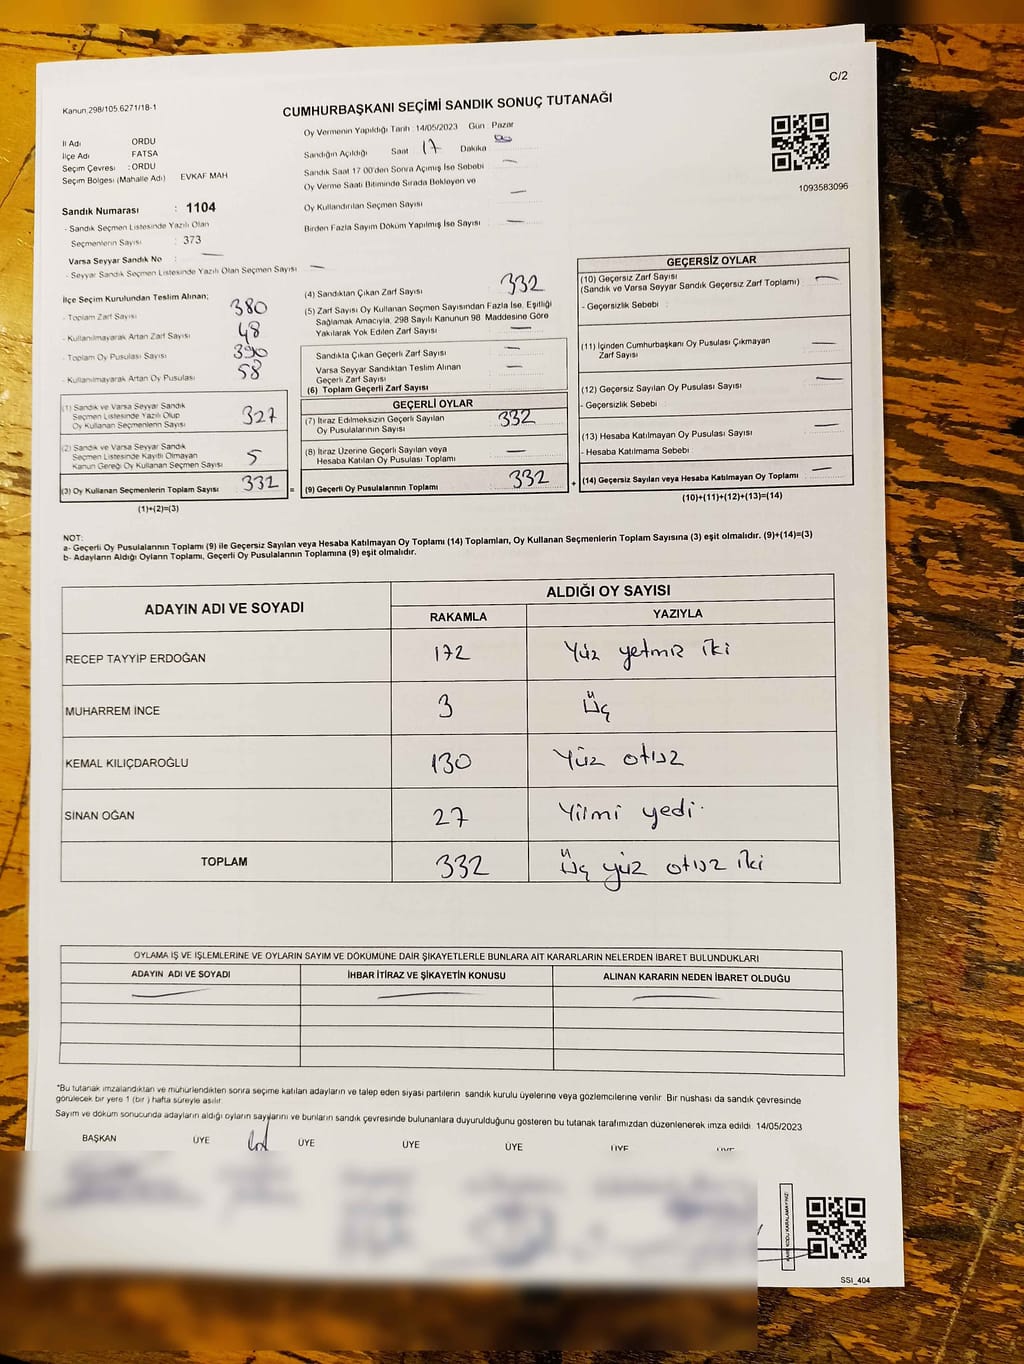 C/2
Kanun 298/105.6271/18-1
CUMHURBAŞKANI SEÇİMİ SANDIK SONUÇ TUTANAĞI
İl Adı ORDU
İlçe Adı FATSA
Seçim Çevresi : ORDU
Seçim Bölgesi (Mahalle Adı) EVKAF MAH
Sandık Numarası : 1104
- Sandık Seçmen Listesinde Yazılı Olan
Seçmenlerin Sayısı : 373
Varsa Seyyar Sandık No :
- Seyyar Sandık Seçmen Listesinde Yazılı Olan Seçmen Sayısı
Oy Vermenin Yapıldığı Tarih : 14/05/2023 Gün : Pazar
Sandığın Açıldığı Saat 17 Dakika
Sandık Saat 17 00'den Sonra Açımış İse Sebebi
Oy Verme Saati Bitiminde Sırada Bekleyen ve
Oy Kullandırılan Seçmen Sayısı
Birden Fazla Sayım Döküm Yapılmış İse Sayısı
1093583096
İlçe Seçim Kurulundan Teslim Alınan;
- Toplam Zarf Sayısı 380
- Kullanılmayarak Artan Zarf Sayısı 48
- Toplam Oy Pusulası Sayısı 390
- Kullanılmayarak Artan Oy Pusulası 58
(1) Sandık ve Varsa Seyyar Sandık
Seçmen Listesinde Yazılı Olup
Oy Kullanan Seçmenlerin Sayısı 327
(2) Sandık ve Varsa Seyyar Sandık
Seçmen Listesinde Kayıtlı Olmayan
Kanun Gereği Oy Kullanan Seçmen Sayısı 5
(3) Oy Kullanan Seçmenlerin Toplam Sayısı 332 =
(1)+(2)=(3)
(4) Sandıktan Çıkan Zarf Sayısı 332
(5) Zarf Sayısı Oy Kullanan Seçmen Sayısından Fazla İse, Eşitliği
Sağlamak Amacıyla, 298 Sayılı Kanunun 98. Maddesine Göre
Yakılarak Yok Edilen Zarf Sayısı
Sandıkta Çıkan Geçerli Zarf Sayısı
Varsa Seyyar Sandıktan Teslim Alınan
Geçerli Zarf Sayısı
(6) Toplam Geçerli Zarf Sayısı
GEÇERLİ OYLAR
(7) İtiraz Edilmeksizin Geçerli Sayılan
Oy Pusulalarının Sayısı 332
(8) İtiraz Üzerine Geçerli Sayılan veya
Hesaba Katılan Oy Pusulası Toplamı
(9) Geçerli Oy Pusulalarının Toplamı 332 +
GEÇERSİZ OYLAR
(10) Geçersiz Zarf Sayısı
(Sandık ve Varsa Seyyar Sandık Geçersiz Zarf Toplamı)
- Geçersizlik Sebebi :
(11) İçinden Cumhurbaşkanı Oy Pusulası Çıkmayan
Zarf Sayısı
(12) Geçersiz Sayılan Oy Pusulası Sayısı
- Geçersizlik Sebebi
(13) Hesaba Katılmayan Oy Pusulası Sayısı
- Hesaba Katılmama Sebebi
(14) Geçersiz Sayılan veya Hesaba Katılmayan Oy Toplamı
(10)+(11)+(12)+(13)=(14)
NOT:
a- Geçerli Oy Pusulalarının Toplamı (9) ile Geçersiz Sayılan veya Hesaba Katılmayan Oy Toplamı (14) Toplamları, Oy Kullanan Seçmenlerin Toplam Sayısına (3) eşit olmalıdır. (9)+(14)=(3)
b- Adayların Aldığı Oyların Toplamı, Geçerli Oy Pusulalarının Toplamına (9) eşit olmalıdır.
ADAYIN ADI VE SOYADI ALDIĞI OY SAYISI
RAKAMLA YAZIYLA
RECEP TAYYİP ERDOĞAN 172 Yüz yetmiz iki
MUHARREM İNCE 3 Üç
KEMAL KILIÇDAROĞLU 130 Yüz otuz
SİNAN OĞAN 27 Yilmi yedi
TOPLAM 332 Üç yüz otuz iki
OYLAMA İŞ VE İŞLEMLERİNE VE OYLARIN SAYIM VE DÖKÜMÜNE DAİR ŞİKAYETLERLE BUNLARA AİT KARARLARIN NELERDEN İBARET BULUNDUKLARI
ADAYIN ADI VE SOYADI İHBAR İTİRAZ VE ŞİKAYETİN KONUSU ALINAN KARARIN NEDEN İBARET OLDUĞU
*Bu tutanak imzalandıktan ve mühürlendikten sonra seçime katılan adayların ve talep eden siyasi partilerin sandık kurulu üyelerine veya gözlemcilerine verilir. Bir nushası da sandık çevresinde
görülecek bir yere 1 (bir) hafta süreyle asılır.
Sayım ve döküm sonucunda adayların aldığı oyların sayılarını ve bunların sandık çevresinde bulunanlara duyurulduğunu gösteren bu tutanak tarafımızdan düzenlenerek imza edildi. 14/05/2023
BAŞKAN ÜYE ÜYE ÜYE ÜYE ÜYE ÜYE
SSI_404